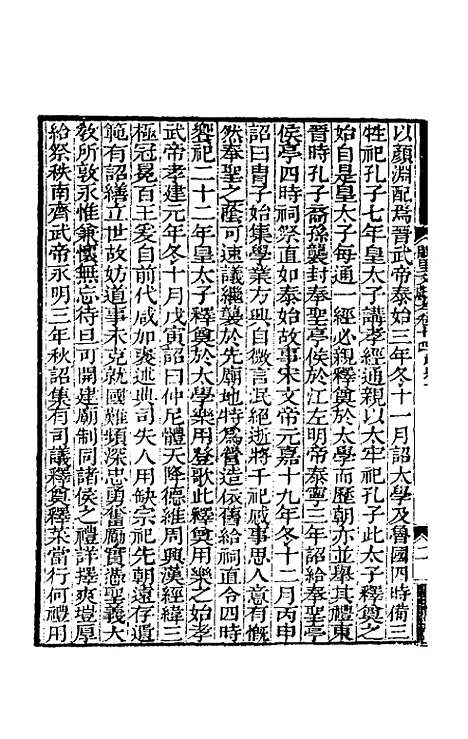 以顏淵配焉晉武帝泰始三年冬十一月詔大學及魯國四時備三
牲祀孔子七年皇太子講孝經通親以太牢祀孔子此太子釋奠之
始自是皇太子每通一經必親釋奠於太學而歷朝亦並舉其禮東
晉時孔子裔孫襲封奉聖亭侯於江左明帝泰寧三年詔給奉聖亭
侯亭四時祠祭直如泰始故事宋文帝元嘉十九年冬十二月丙申
詔曰胄子始集學業方興自微言泯絕逝將千祀感事思人意有慨
然奉聖之蔭可速議繼襲於先廟地特為營造依舊給祠直令四時
饗祀二十二年皇太子釋奠於太學樂用登歌此釋奠用樂之始孝
武帝孝建元年冬十月戊寅詔曰仲尼體天降德維周興漢經緯三
極冠冕百王爰自前代咸加褒述典司失人用缺宗祀先朝遠存遺
範有詔繕立世故妨道事未克就國難頻深忠勇奮勵實憑聖義大
教所敦永惟兼懷無忘待旦可開建廟制同諸侯之禮詳擇爽塏厚
給祭秩南齊武帝永明三年秋詔集有司議釋奠釋菜當行何禮用